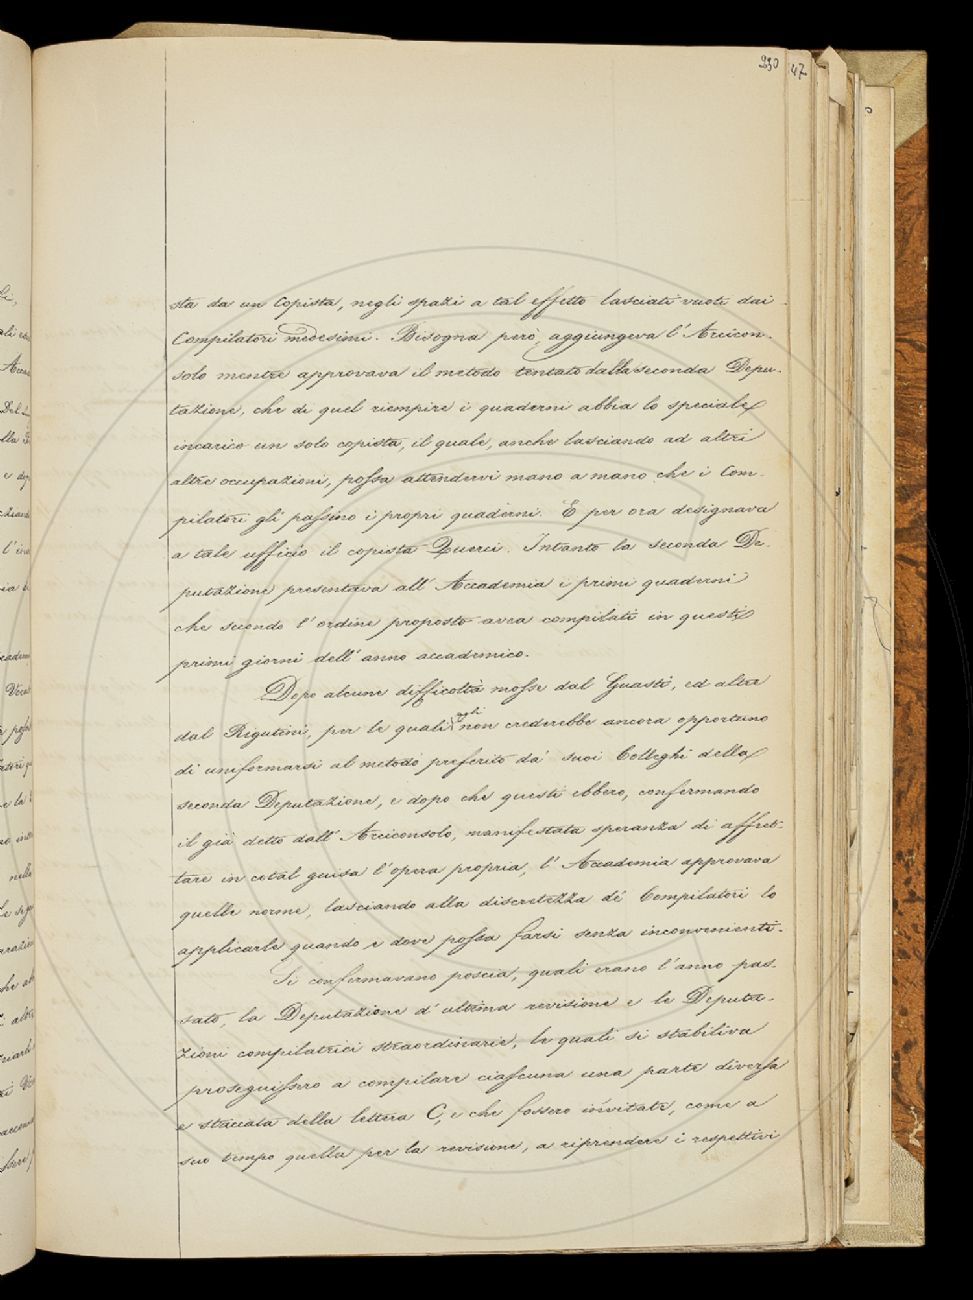 230
47
sta da un Copista, negli spazi a tal effetto lasciati vuoti dai
Compilatori medesimi. Bisogna però, aggiungeva l'Arcicon-
solo mentre approvava il metodo tentato dalla seconda Depu-
tazione, che di quel riempire i quaderni abbia lo speciale
incarico un solo copista, il quale, anche lasciando ad altri
altre occupazioni, possa attendervi mano a mano che i Com-
pilatori gli passino i propri quaderni. E per ora designava
a tale ufficio il copista Querci. Intanto la seconda De-
putazione presentava all'Accademia i primi quaderni
che secondo l'ordine proposto avea compilati in questi
primi giorni dell'anno accademico.
Dopo alcune difficoltà mosse dal Guasti, ed altra
dal Rigutini, per le quali egli non crederebbe ancora opportuno
di uniformarsi al metodo preferito da' suoi Colleghi della
seconda Deputazione, e dopo che questi ebbero, confermando
il già detto dall'Arciconsolo, manifestata speranza di affret-
tare in cotal guisa l'opera propria, l'Accademia approvava
quelle norme, lasciando alla discretezza de' Compilatori lo
applicarle quando e dove possa farsi senza inconvenienti.
Si confermavano poscia, quali erano l'anno pas-
sato, la Deputazione d'ultima revisione e le Deputa-
zioni compilatrici straordinarie, le quali si stabiliva
proseguissero a compilare ciascuna una parte diversa
e staccata della lettera C, e che fossero invitate, come a
suo tempo quella per la revisione, a riprendere i respettivi